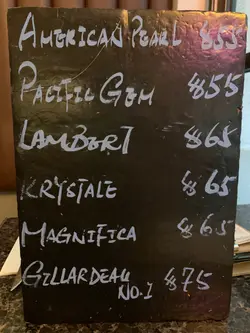 AMERICAN PEARL $55
PACIFIC GEM $55
LAMBERT $65
KRYSTALE $65
MAGNIFICA $65
GILLARDEAU NO.1 $75